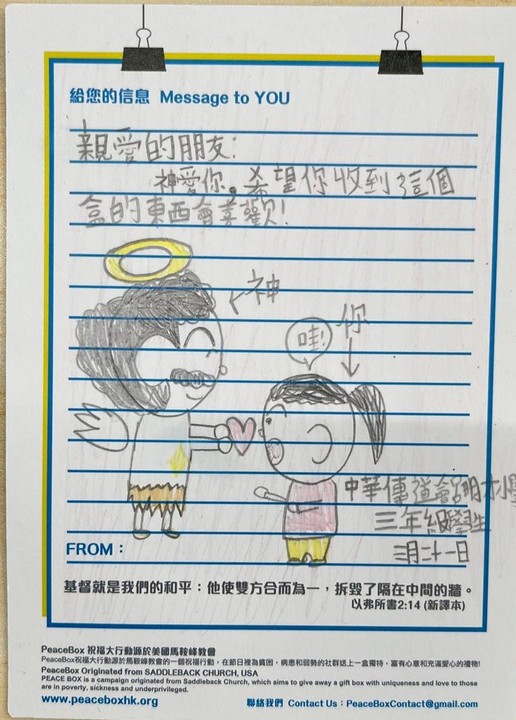 給您的信息 Message to YOU
親愛的朋友:
神愛你。希望你收到這個
盒的東西會喜歡!
神
你
哇!
中華傳道會呂明才小學
三年級學生
三月二十一日
FROM：
基督就是我們的和平：他使雙方合而為一，拆毀了隔在中間的牆。
以弗所書2:14 (新譯本)
PeaceBox 祝福大行動源於美國馬鞍峰教會
PeaceBox祝福大行動源於馬鞍峰教會的一個祝福行動，在節日裡為貧困，病患和弱勢的社群送上一盒獨特，富有心意和充滿愛心的禮物!
PeaceBox Originated from SADDLEBACK CHURCH, USA
PEACE BOX is a campaign originated from Saddleback Church, which aims to give away a gift box with uniqueness and love to those
are in poverty, sickness and underprivileged.
www.peaceboxhk.org
聯絡我們 Contact Us：PeaceBoxContact@gmail.com